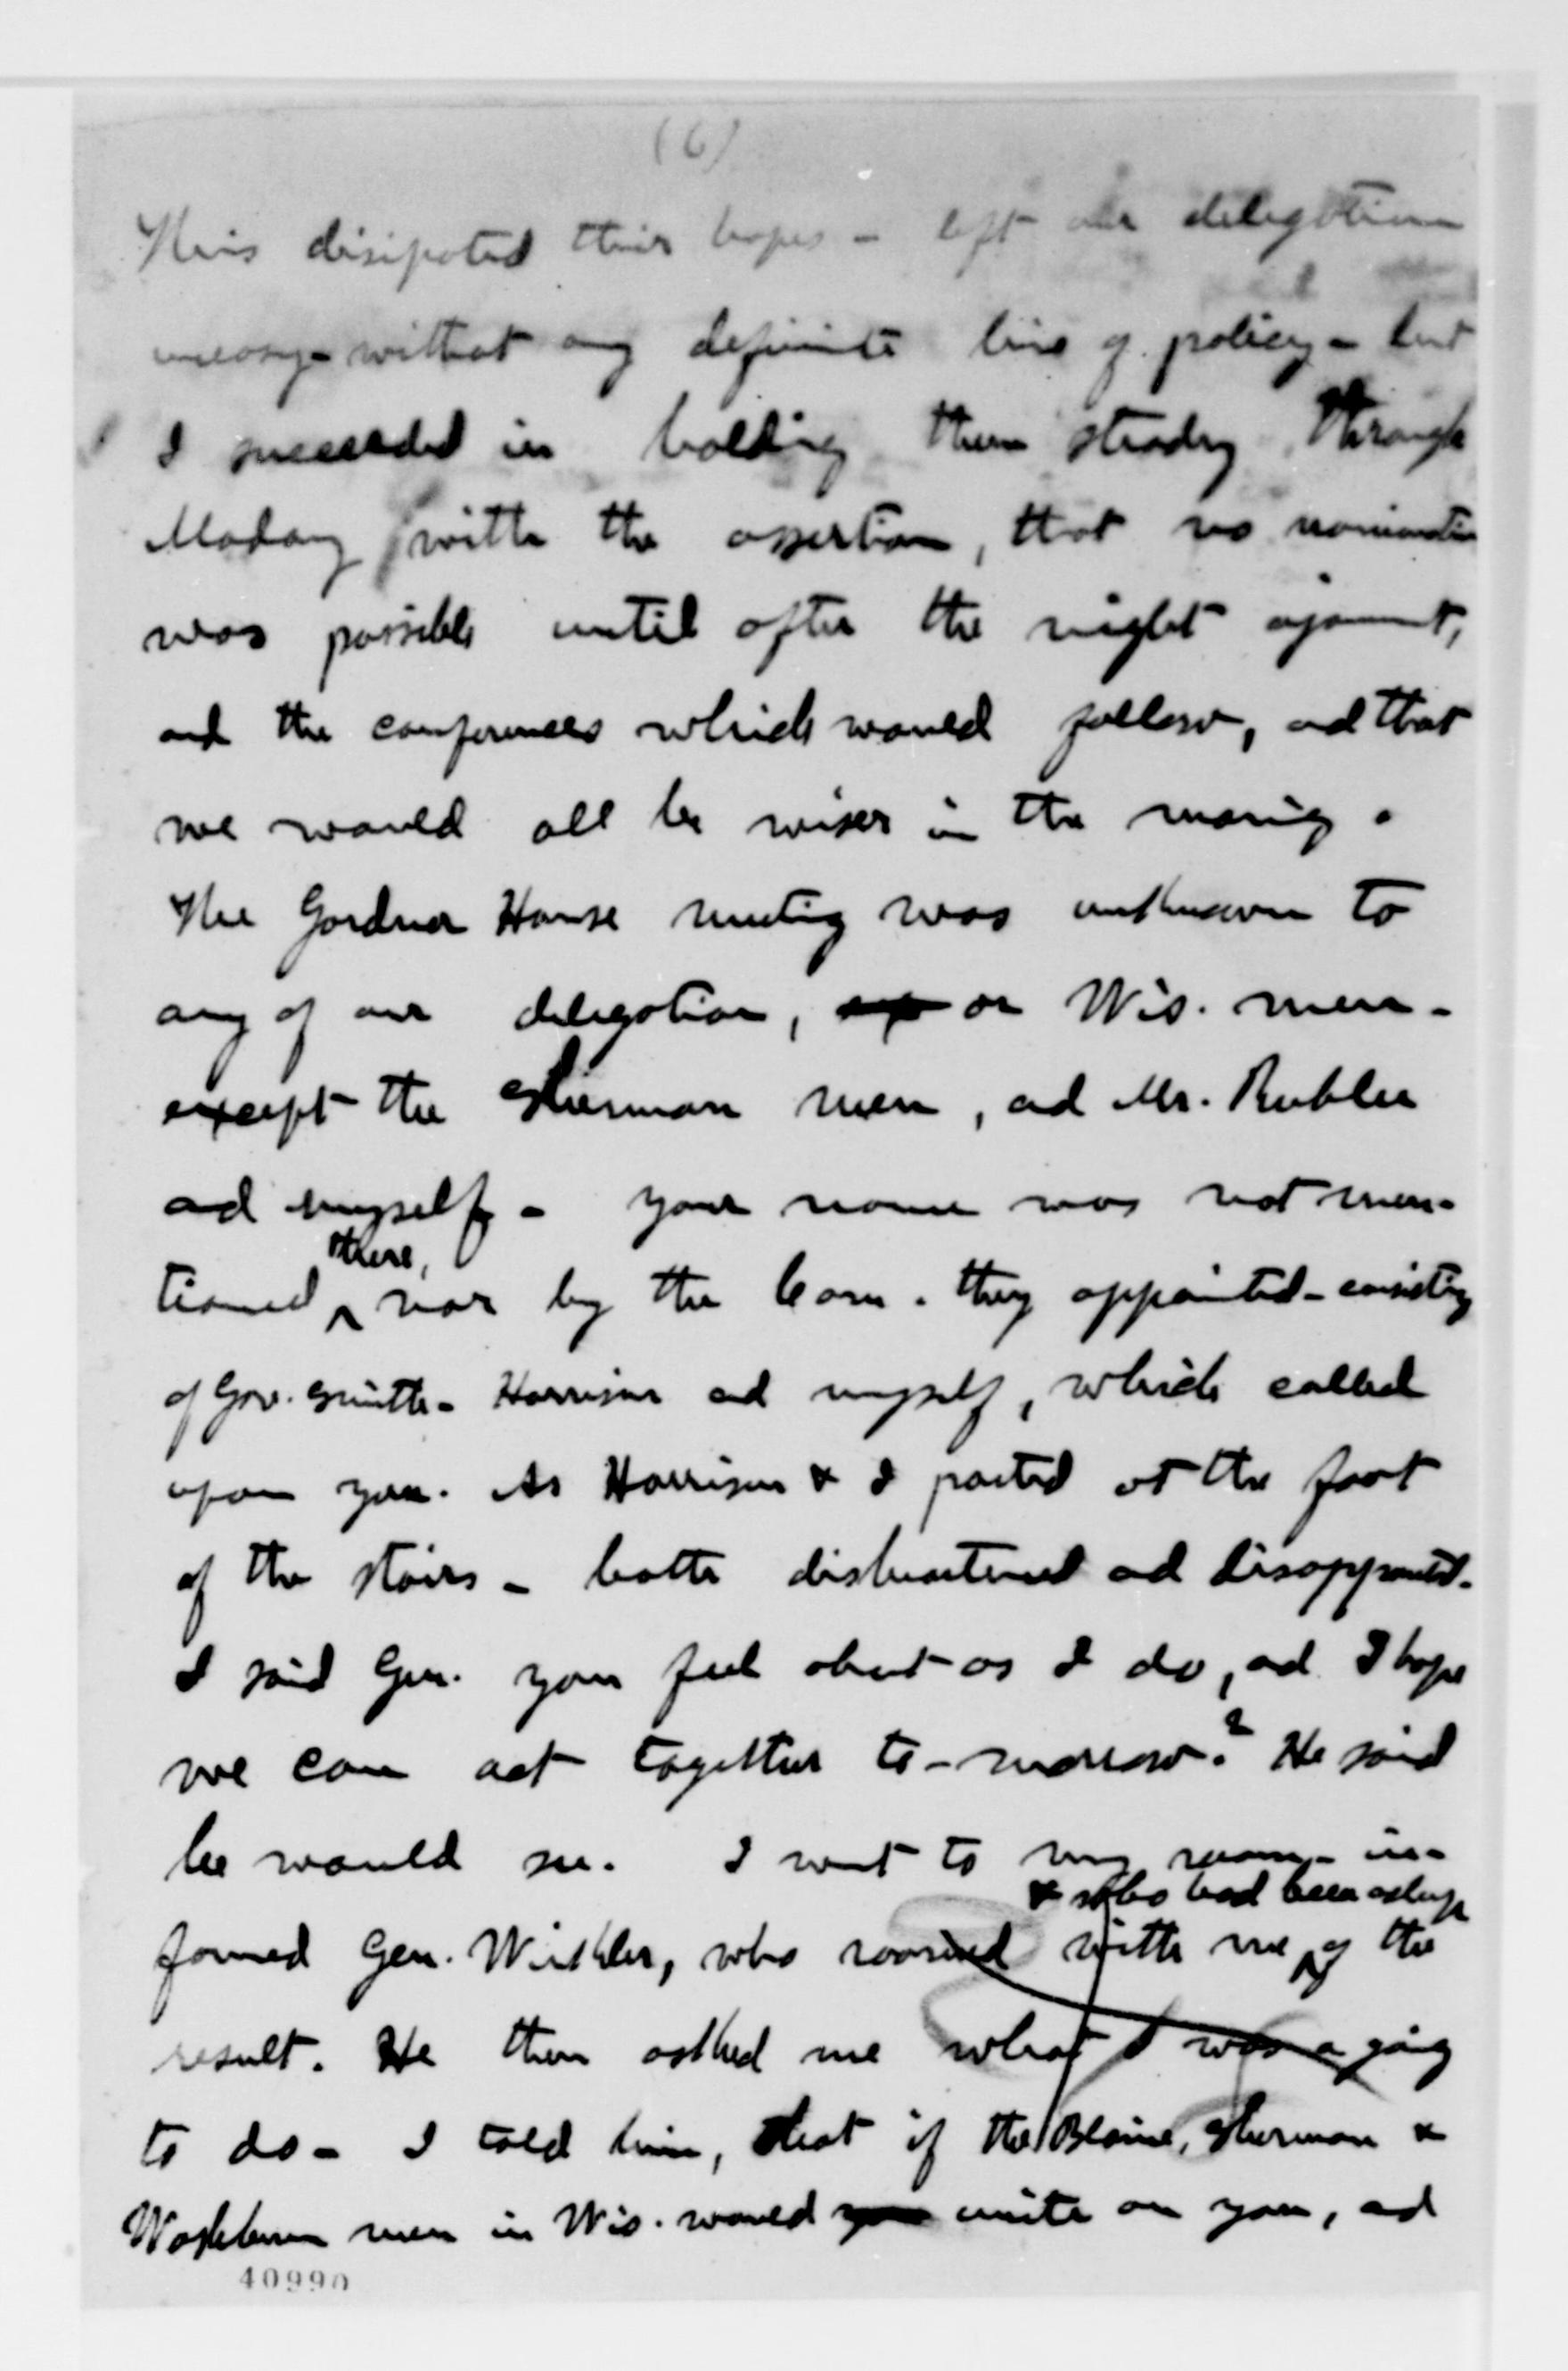 (6)
This disipated their hopes - left our delegation
uneasy - without any definite line of policy - but
I succeeded in holding them steady through
Moday with the assertion, that no nomination
was possible until after the night ajournmt,
and the conferences which would follow, ad that
we would all be wiser in the morning.
The Gardner House meeting was unknown to
any of our delegation, or Wis. men -
except the Sherman men, ad Mr. Rublee
ad myself - your name was not men-
tioned there, nor by the Com. they appointed - consisting
of Gov. Smith - Harrison ad myself, which called
upon you. As Harrison & I parted at the foot
of the stairs - both disheartened ad disappointed -
I said Gen. you feel about as I do, ad I hope
we can act together to-morrow? He said
he would see. I went to my room - in-
formed Gen. who roomed with me & who had been asleep of the
result. He then asked me what I was a going
to do - I told him, that if the Blaine, Sherman &
Washburn men in Wis. would unite on you, ad
40990